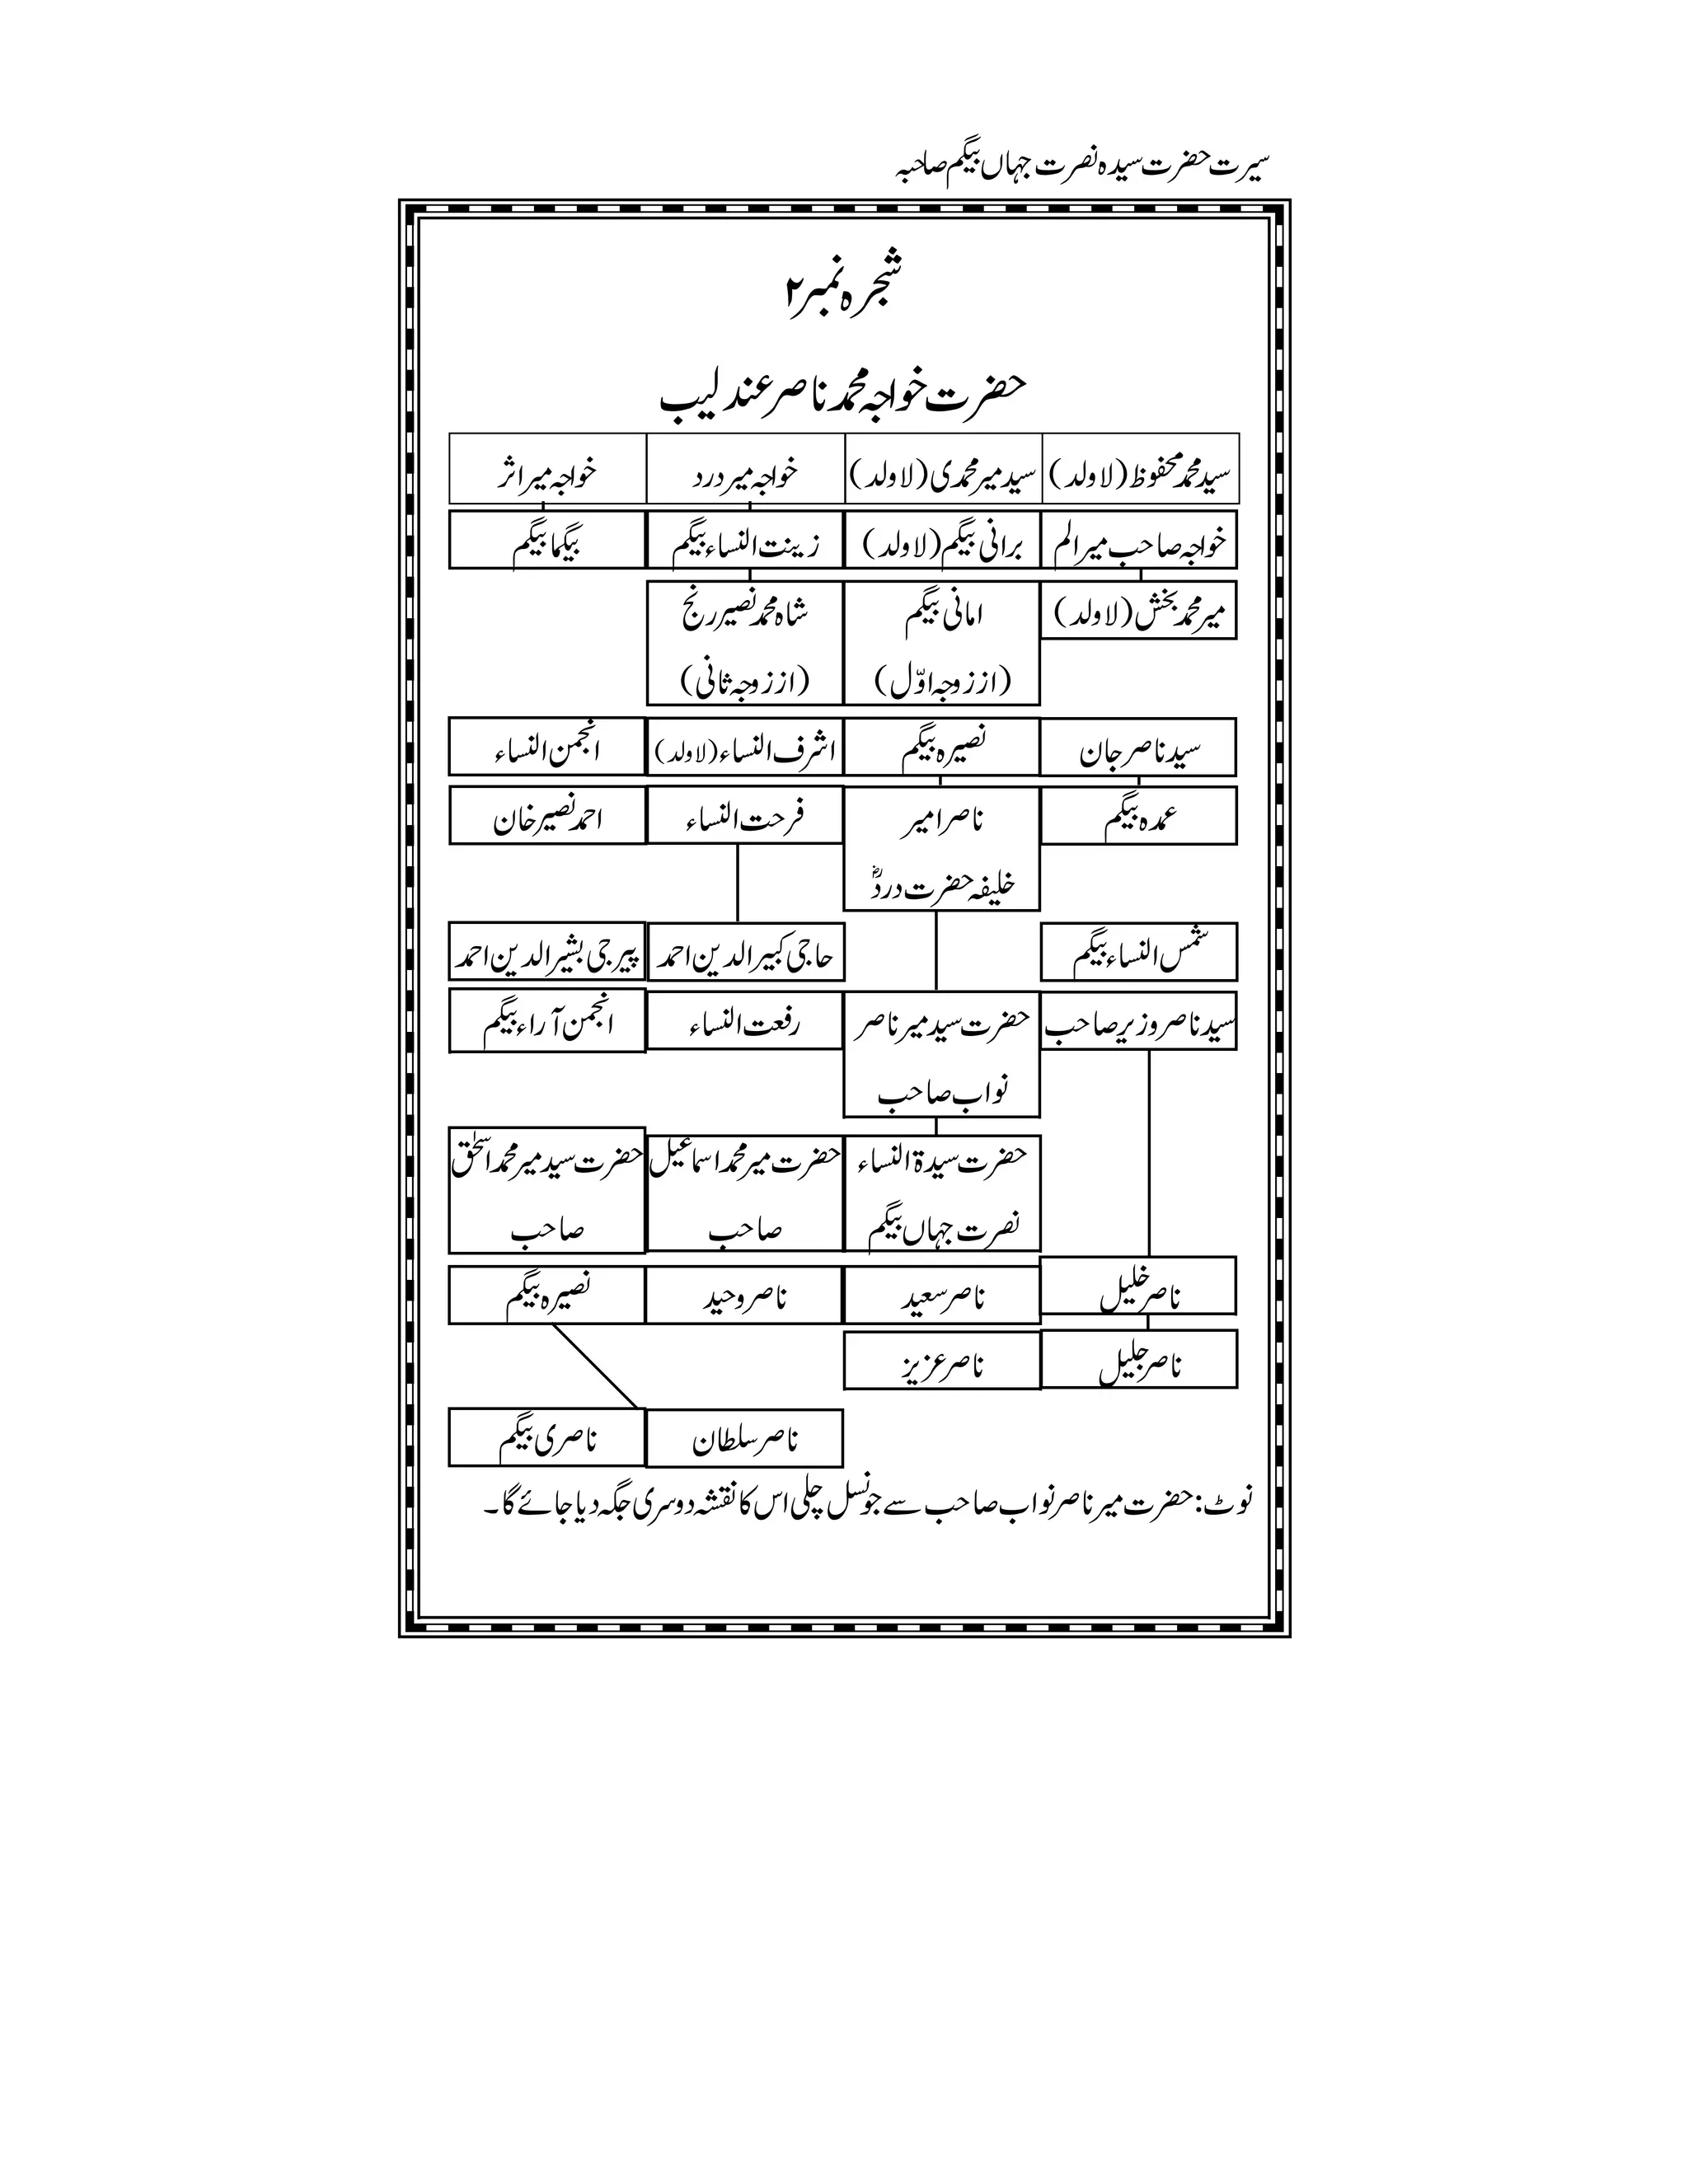 سیرت حضرت سیدہ نصرت جہاں بیگم صاحبہ
شجرہ نمبر ۲
حضرت خواجہ محمد ناصر عندلیب
سید محمد محفوظ (لا ولد) سید میر محمدی (لا ولد) خواجہ میر درد خواجہ میر اثر
خواجہ صاحب میر الم برانی بیگم (لا ولد) زینت النساء بیگم بیگما بیگم
میر محمد بخش (لا ولد) امانی بیگم شاہ محمد نصیر رنج
(از زوجہ اوّل) (از زوجہ ثانی)
سید ناصر جان نصیرہ بیگم اشرف النساء (لا ولد) انجمن النساء
عمدہ بیگم ناصر امیر فرحت النساء احمد نصیر خان
خلیفہ حضرت دردؓ
شمس النساء بیگم حاجی کبیر الدین احمد پیر جی بشیر الدین احمد
سید ناصر وزیر صاحب حضرت سید میر ناصر رفعت النساء انجمن آراء بیگم
نواب صاحب
حضرت سیدۃ النساء حضرت میر محمد اسماعیل حضرت سید میر محمد اسحٰق
نصرت جہاں بیگم صاحب صاحب
ناصر خلیل ناصر سعید ناصر وحید نصیرہ بیگم
ناصر جلیل ناصر عزیز
ناصر سلطان ناصری بیگم
نوٹ: حضرت میر ناصر نواب صاحب سے جو نسل چلی اس کا نقشہ دوسری جگہ دیا جائے گا۔